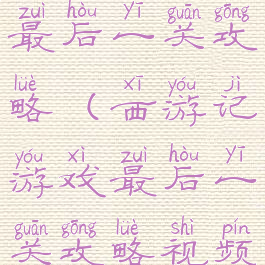 zuì hòu yī guān gōng
最后一关攻
lüè xī yóu jì
略（西游记
yóu xì zuì hòu yī
游戏最后一
guān gōng lüè shì pín
关攻略视频